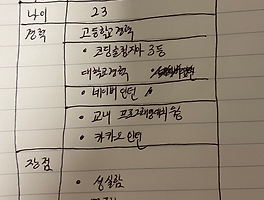 나이 23
경력 고등학교 경력
• 코딩올림피아드 3등
대학교 경력
• 네이버 인턴
• 교내 프로그래밍대회 수상
• 카카오 인턴
장점
• 성실함